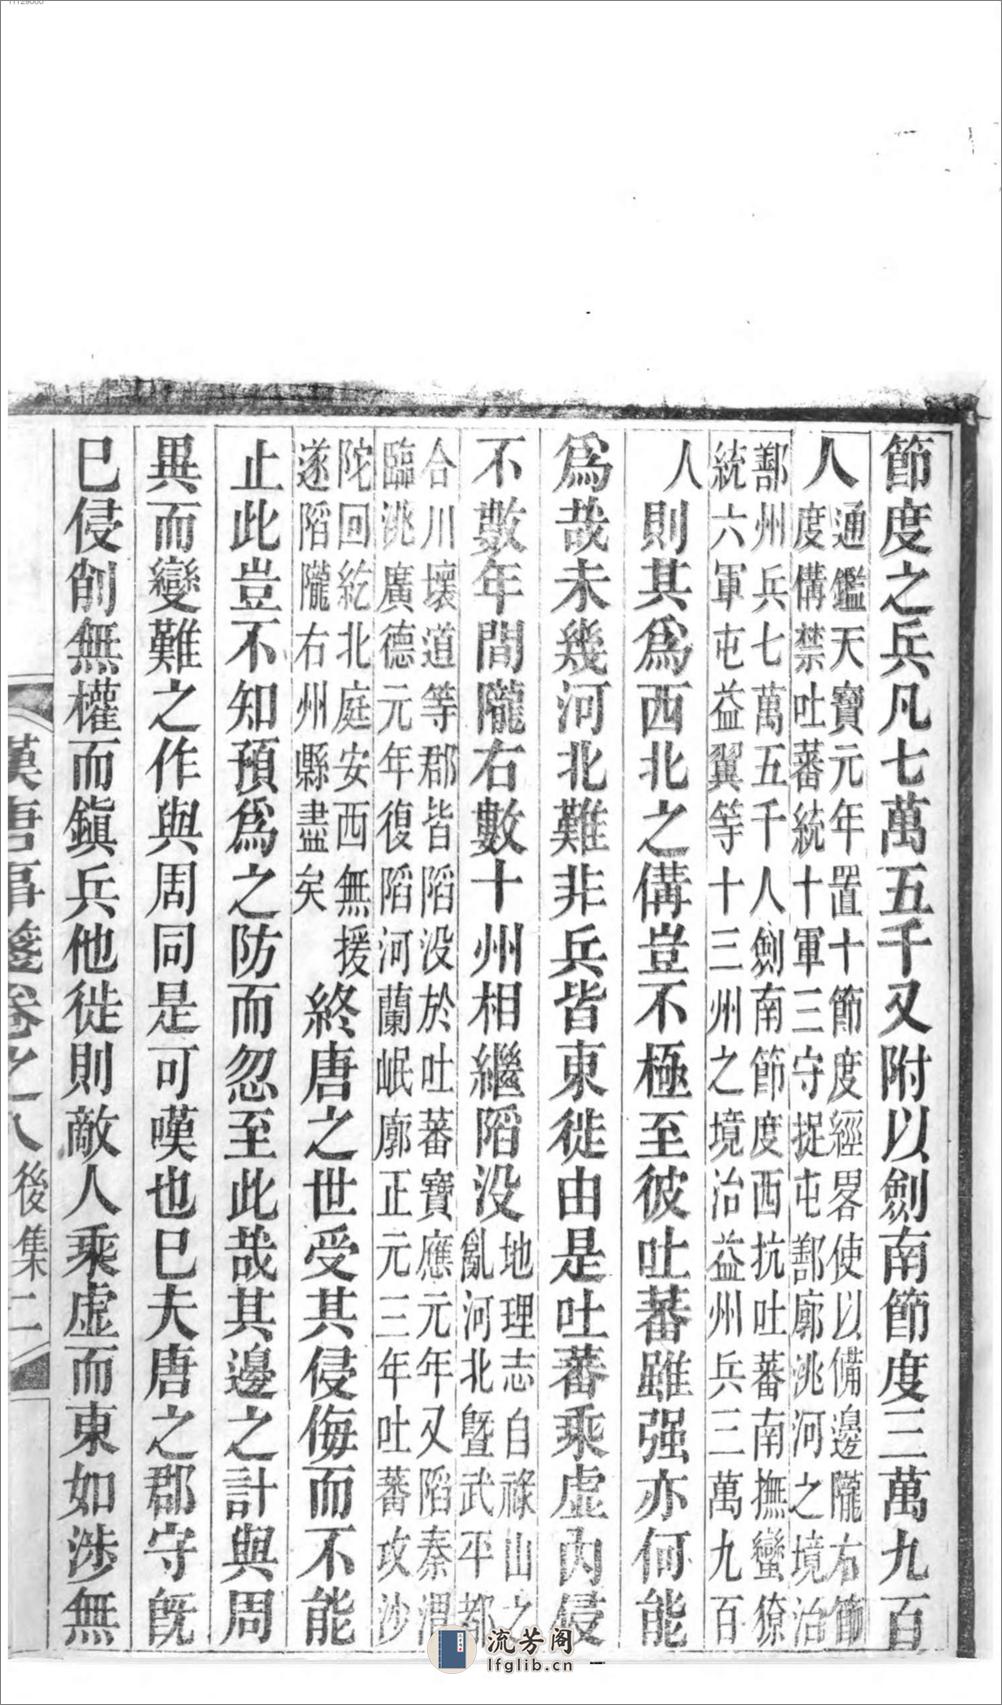 節度之兵凡七萬五千又附以劍南節度三萬九百
人通鑑天寶元年置十節度經畧使以備邊隴右節
度備禁吐蕃統十軍三守捉屯鄯廓洮河之境治
鄯州兵七萬五千人劍南節度西抗吐蕃南撫蠻獠
統六軍屯益翼等十三州之境治益州兵三萬九百
人則其爲西北之備豈不極至彼吐蕃雖强亦何能
爲哉未幾河北難非兵皆東徙由是吐蕃乘虛內侵
不數年間隴右數十州相繼陷没地理志自祿山之
亂河北曁武平都
合川壞道等郡皆陷没於吐蕃寶應元年又陷秦渭
臨洮廣德元年復陷河蘭岷廓正元三年吐蕃攻沙
陀回紇北庭安西無援
遂陷隴右州縣盡矣
終唐之世受其侵侮而不能
止此豈不知預爲之防而忽至此哉其邊之計與周
異而變難之作與周同是可嘆也已夫唐之郡守旣
已侵削無權而鎭兵他徙則敵人乘虛而東如涉無
漢唐事箋卷之八後集二
流芳阁
lfglib.cn